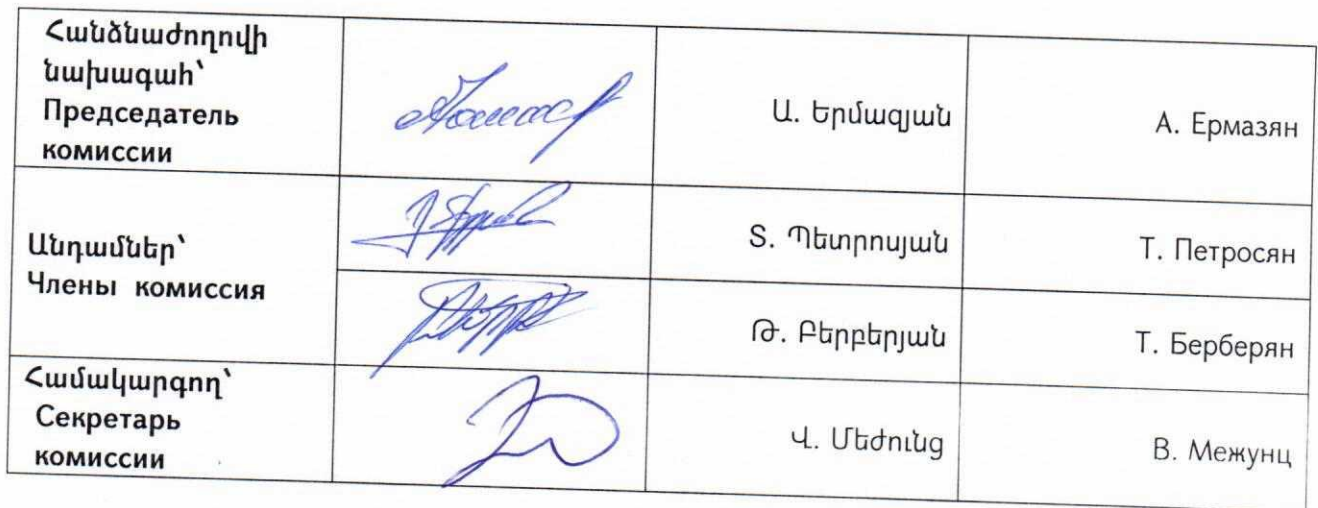 Հանձնաժողովի
նախագահ՝
Председатель
комиссии
Ա. Երմազյան
А. Ермазян
Անդամներ՝
Члены комиссия
Տ. Պետրոսյան
Т. Петросян
Թ. Բերբերյան
Т. Берберян
Համակարգող՝
Секретарь
комиссии
Վ. Մեժունց
В. Межунц